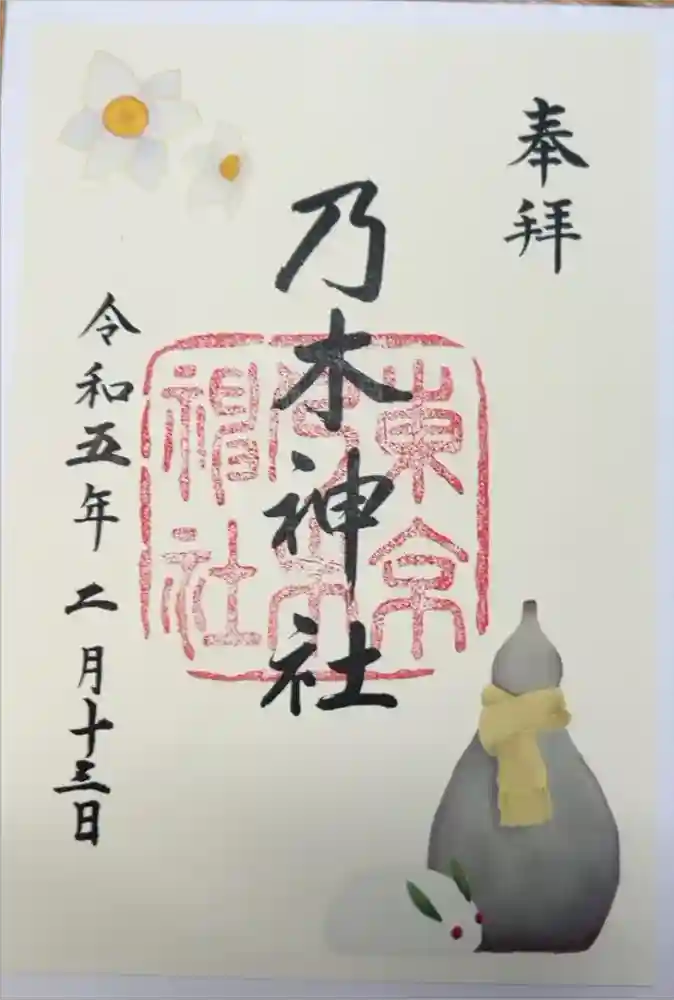 奉拝
乃木神社
東京乃木神社
令和五年二月十三日